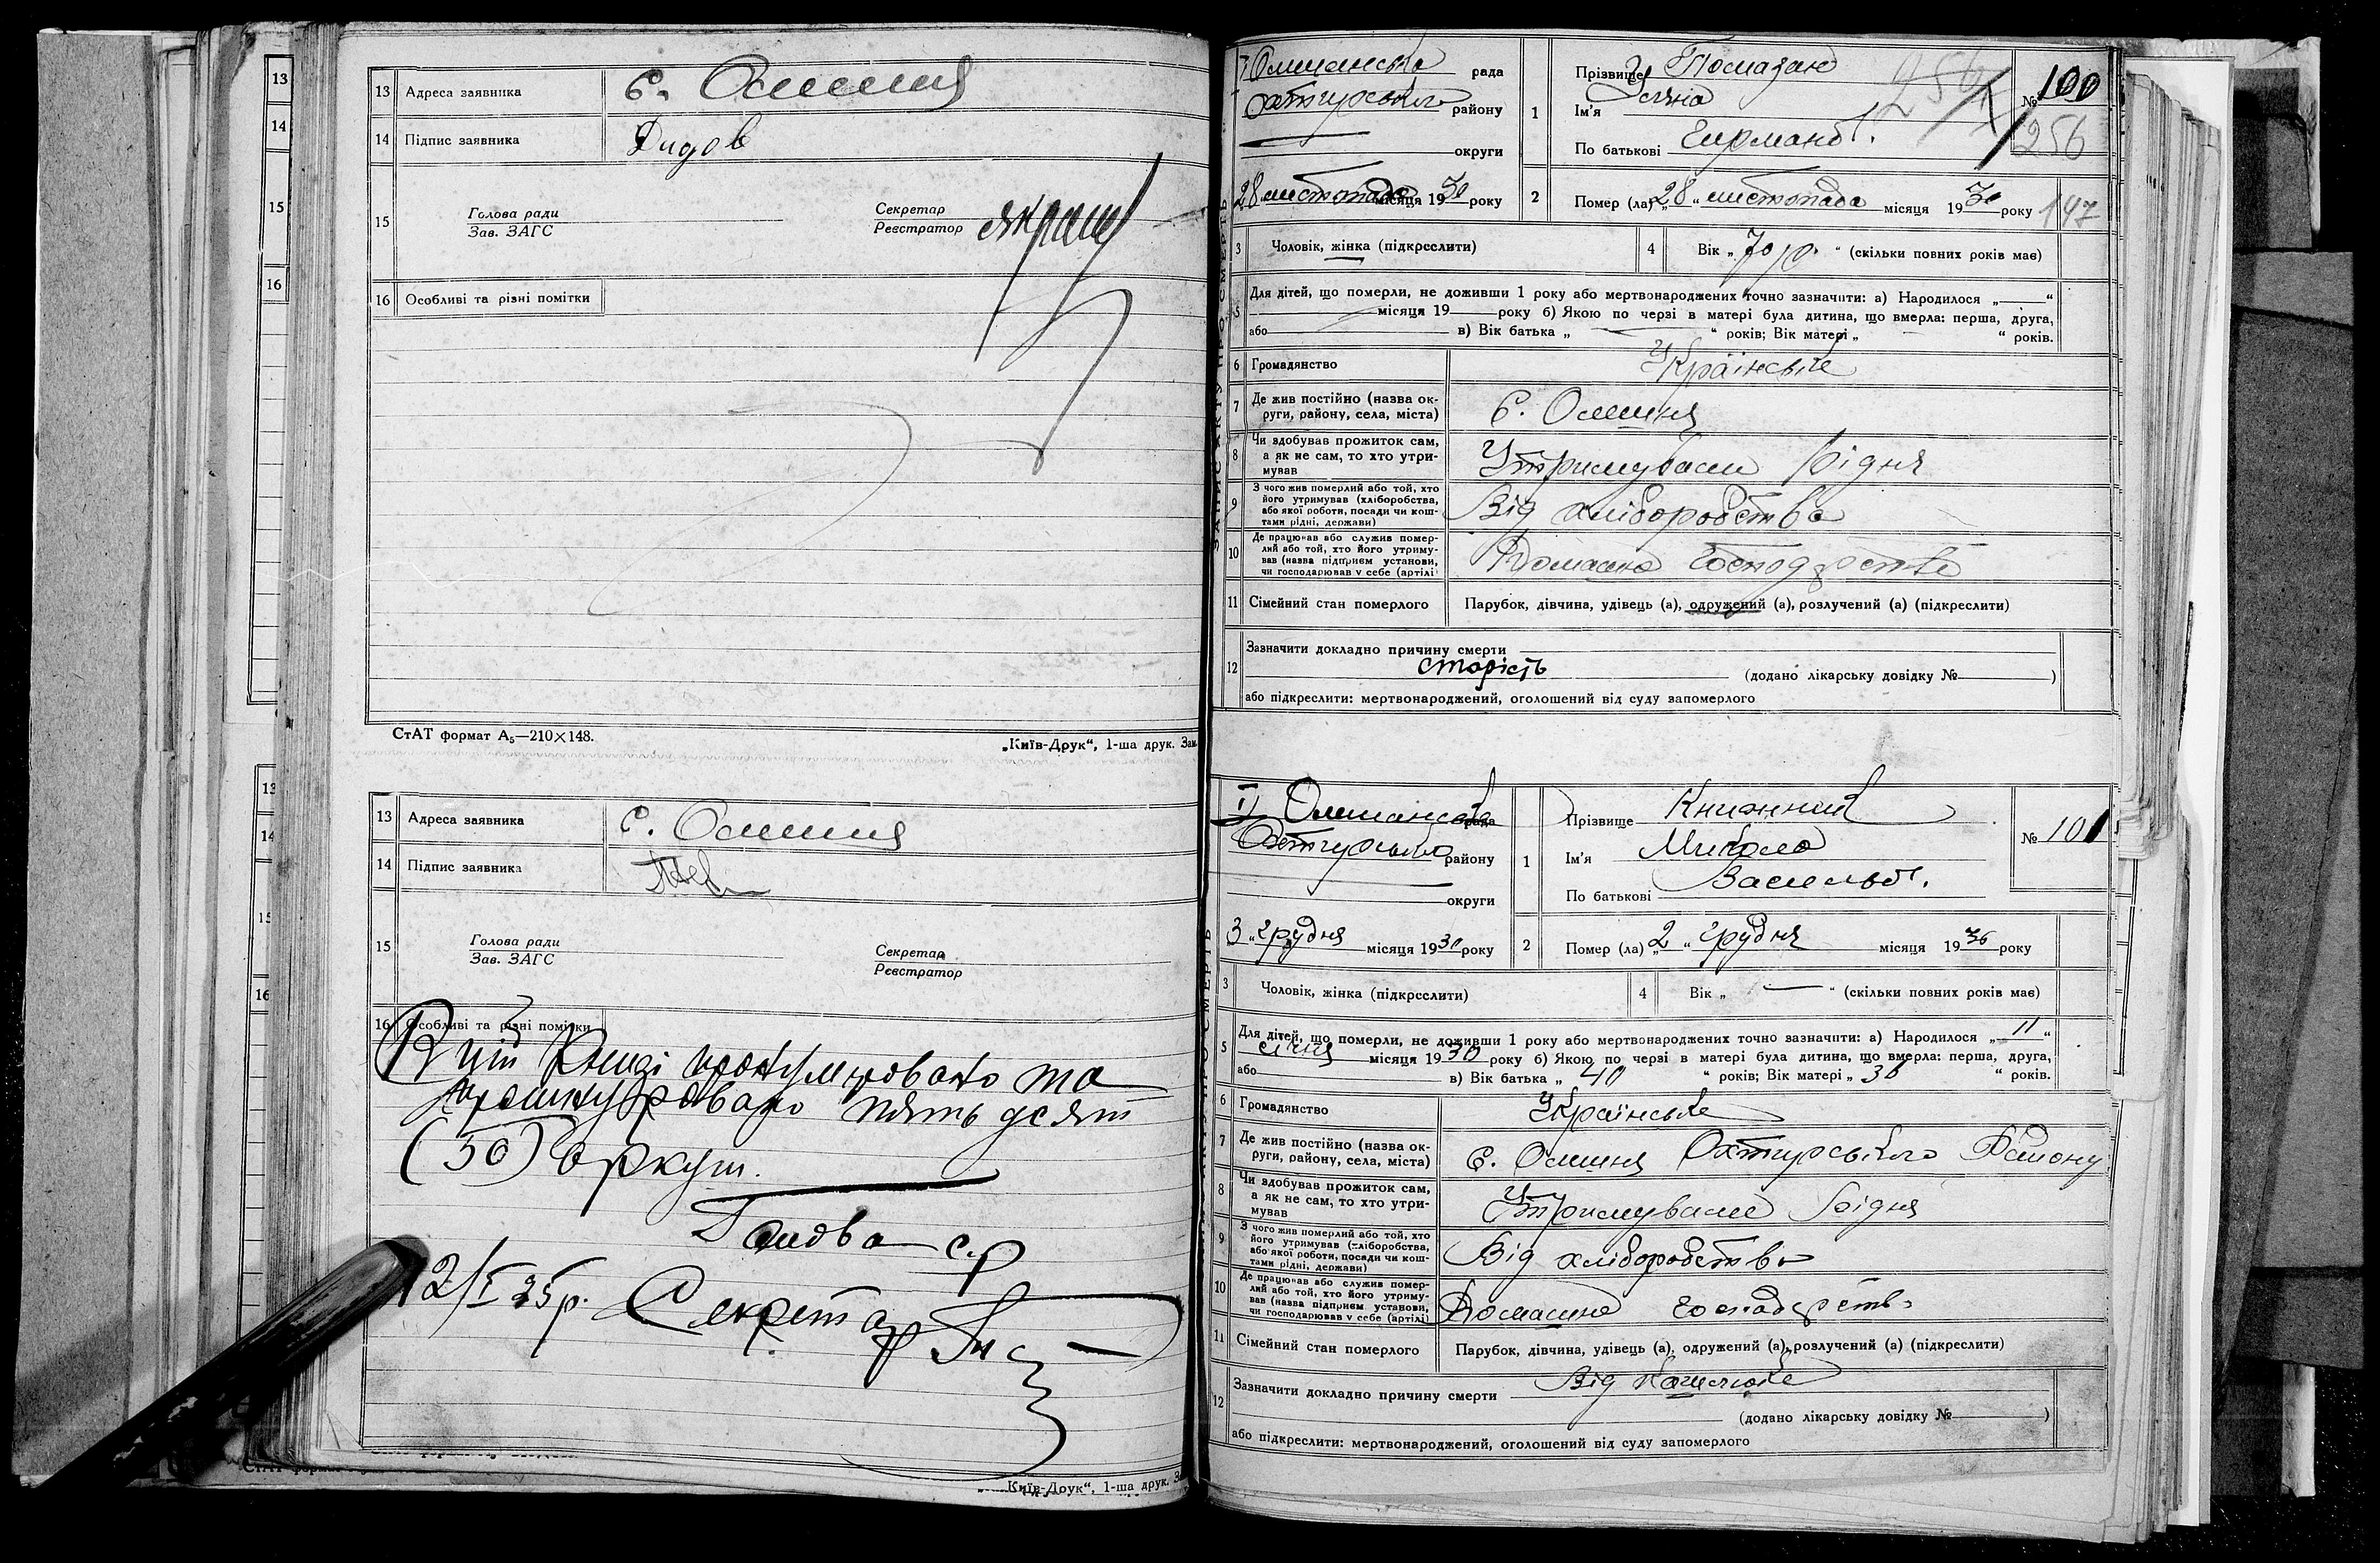 13
14
15
16
13 Адреса заявника с. Олешня
14 Підпис заявника Дидов
15 Голова ради
Зав. ЗАГС
Секретар
Реєстратор
16 Особливі та різні помітки
СтАТ формат А₅—210×148.
„Київ-Друк“, 1-ша друк. Зам.
13
14
15
16
13 Адреса заявника с. Олешня
14 Підпис заявника
15 Голова ради
Зав. ЗАГС
Секретар
Реєстратор
16 Особливі та різні помітки
В цій Книзі пронумеровано та
прошнуровано пять десят
(50) аркуш.
Голова с.р
12/I 35 р. Секретар
Київ-Друк“, 1-ша друк. З
Олешанська рада
Охтирського району
округи
28 листопада місяця 1930 року
1 Прізвище Помазан
Ім'я Уляна
По батькові
№ 100
256
256
2 Помер (ла) „28“ листопада місяця 1930 року
147
3 Чоловік, жінка (підкреслити)
4 Вік „70 р.“ (скільки повних років має)
5 Для дітей, що померли, не доживши 1 року або мертвонароджених точно зазначити: а) Народилося „ “
місяця 19 року б) Якою по черзі в матері була дитина, що вмерла: перша, друга,
або в) Вік батька „ “ років; Вік матері „ “ років.
6 Громадянство Українське
7 Де жив постійно (назва округи, району, села, міста) с. Олешня
8 Чи здобував прожиток сам, а як не сам, то хто утримував Утримували рідня
9 З чого жив померлий або той, хто його утримував (хліборобства, або якої роботи, посади чи коштами рідні, держави) Від хліборобства
10 Де працював або служив померлий або той, хто його утримував (назва підприєм установи, чи господарював у себе (артілі) Домашнє господрство
11 Сімейний стан померлого Парубок, дівчина, удівець (а), одружений (а), розлучений (а) (підкреслити)
12 Зазначити докладно причину смерти
старість (додано лікарську довідку № )
або підкреслити: мертвонароджений, оголошений від суду запомерлого
Олешанська рада
Охтирського району
округи
3 „грудня місяця 1930 року
1 Прізвище Книжний
Ім'я Микола
По батькові Васильов.
№ 101
2 Помер (ла) „2“ грудня місяця 1930 року
3 Чоловік, жінка (підкреслити)
4 Вік „ “ (скільки повних років має)
5 Для дітей, що померли, не доживши 1 року або мертвонароджених точно зазначити: а) Народилося „11“
січня місяця 1930 року б) Якою по черзі в матері була дитина, що вмерла: перша, друга,
або в) Вік батька „40“ років; Вік матері „36“ років.
6 Громадянство Українське
7 Де жив постійно (назва округи, району, села, міста) с. Олешня Охтирського Району
8 Чи здобував прожиток сам, а як не сам, то хто утримував Утримували рідня
9 З чого жив померлий або той, хто його утримував (хліборобства, або якої роботи, посади чи коштами рідні, держави) Від хліборобства
10 Де працював або служив померлий або той, хто його утримував (назва підприєм установи, чи господарював у себе (артілі) Домашнє господарств
11 Сімейний стан померлого Парубок, дівчина, удівець (а), одружений (а), розлучений (а) (підкреслити)
12 Зазначити докладно причину смерти Від
(додано лікарську довідку № )
або підкреслити: мертвонароджений, оголошений від суду запомерлого